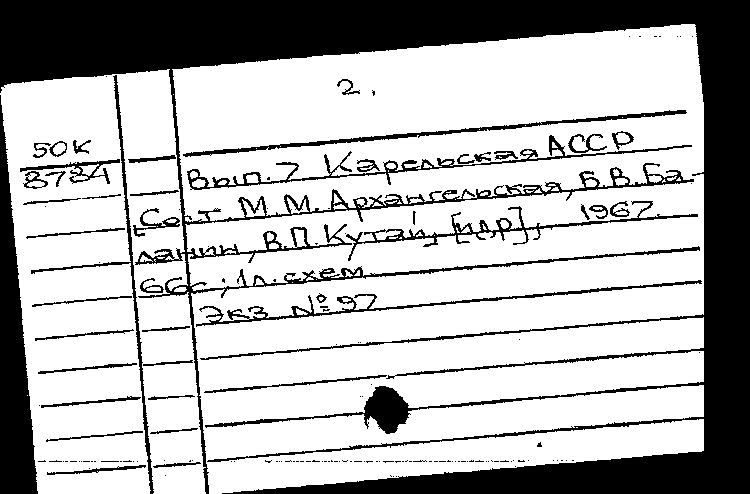 2.
50К
8734
Вып. 7 Карельская АССР
[Сост. М.М. Архангельская, Б.В. Ба-
ланин, В.П. Кутай, [и др], 1967.
66с; 1л. схем.
Экз №97